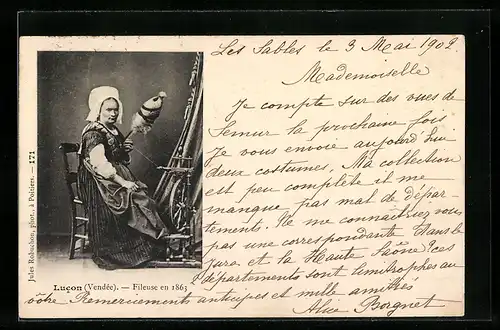 Les Sables le 3 Mai 1902
Mademoiselle
Je compte sur des vues de
Semur la prochaine fois
Je vous envoie aujourd'hui
deux costumes. Ma collection
est peu complète il me
manque pas mal de dépar-
tements. Ne me connaîtriez vous
pas une correspondante dans le
Jura et la Haute Saône ces
2 départements sont limitrophes au
vôtre Remerciements anticipés et mille amitiés
Alice Borgnet
Jules Robuchon, phot., à Poitiers. — 171
Luçon (Vendée). — Fileuse en 1863